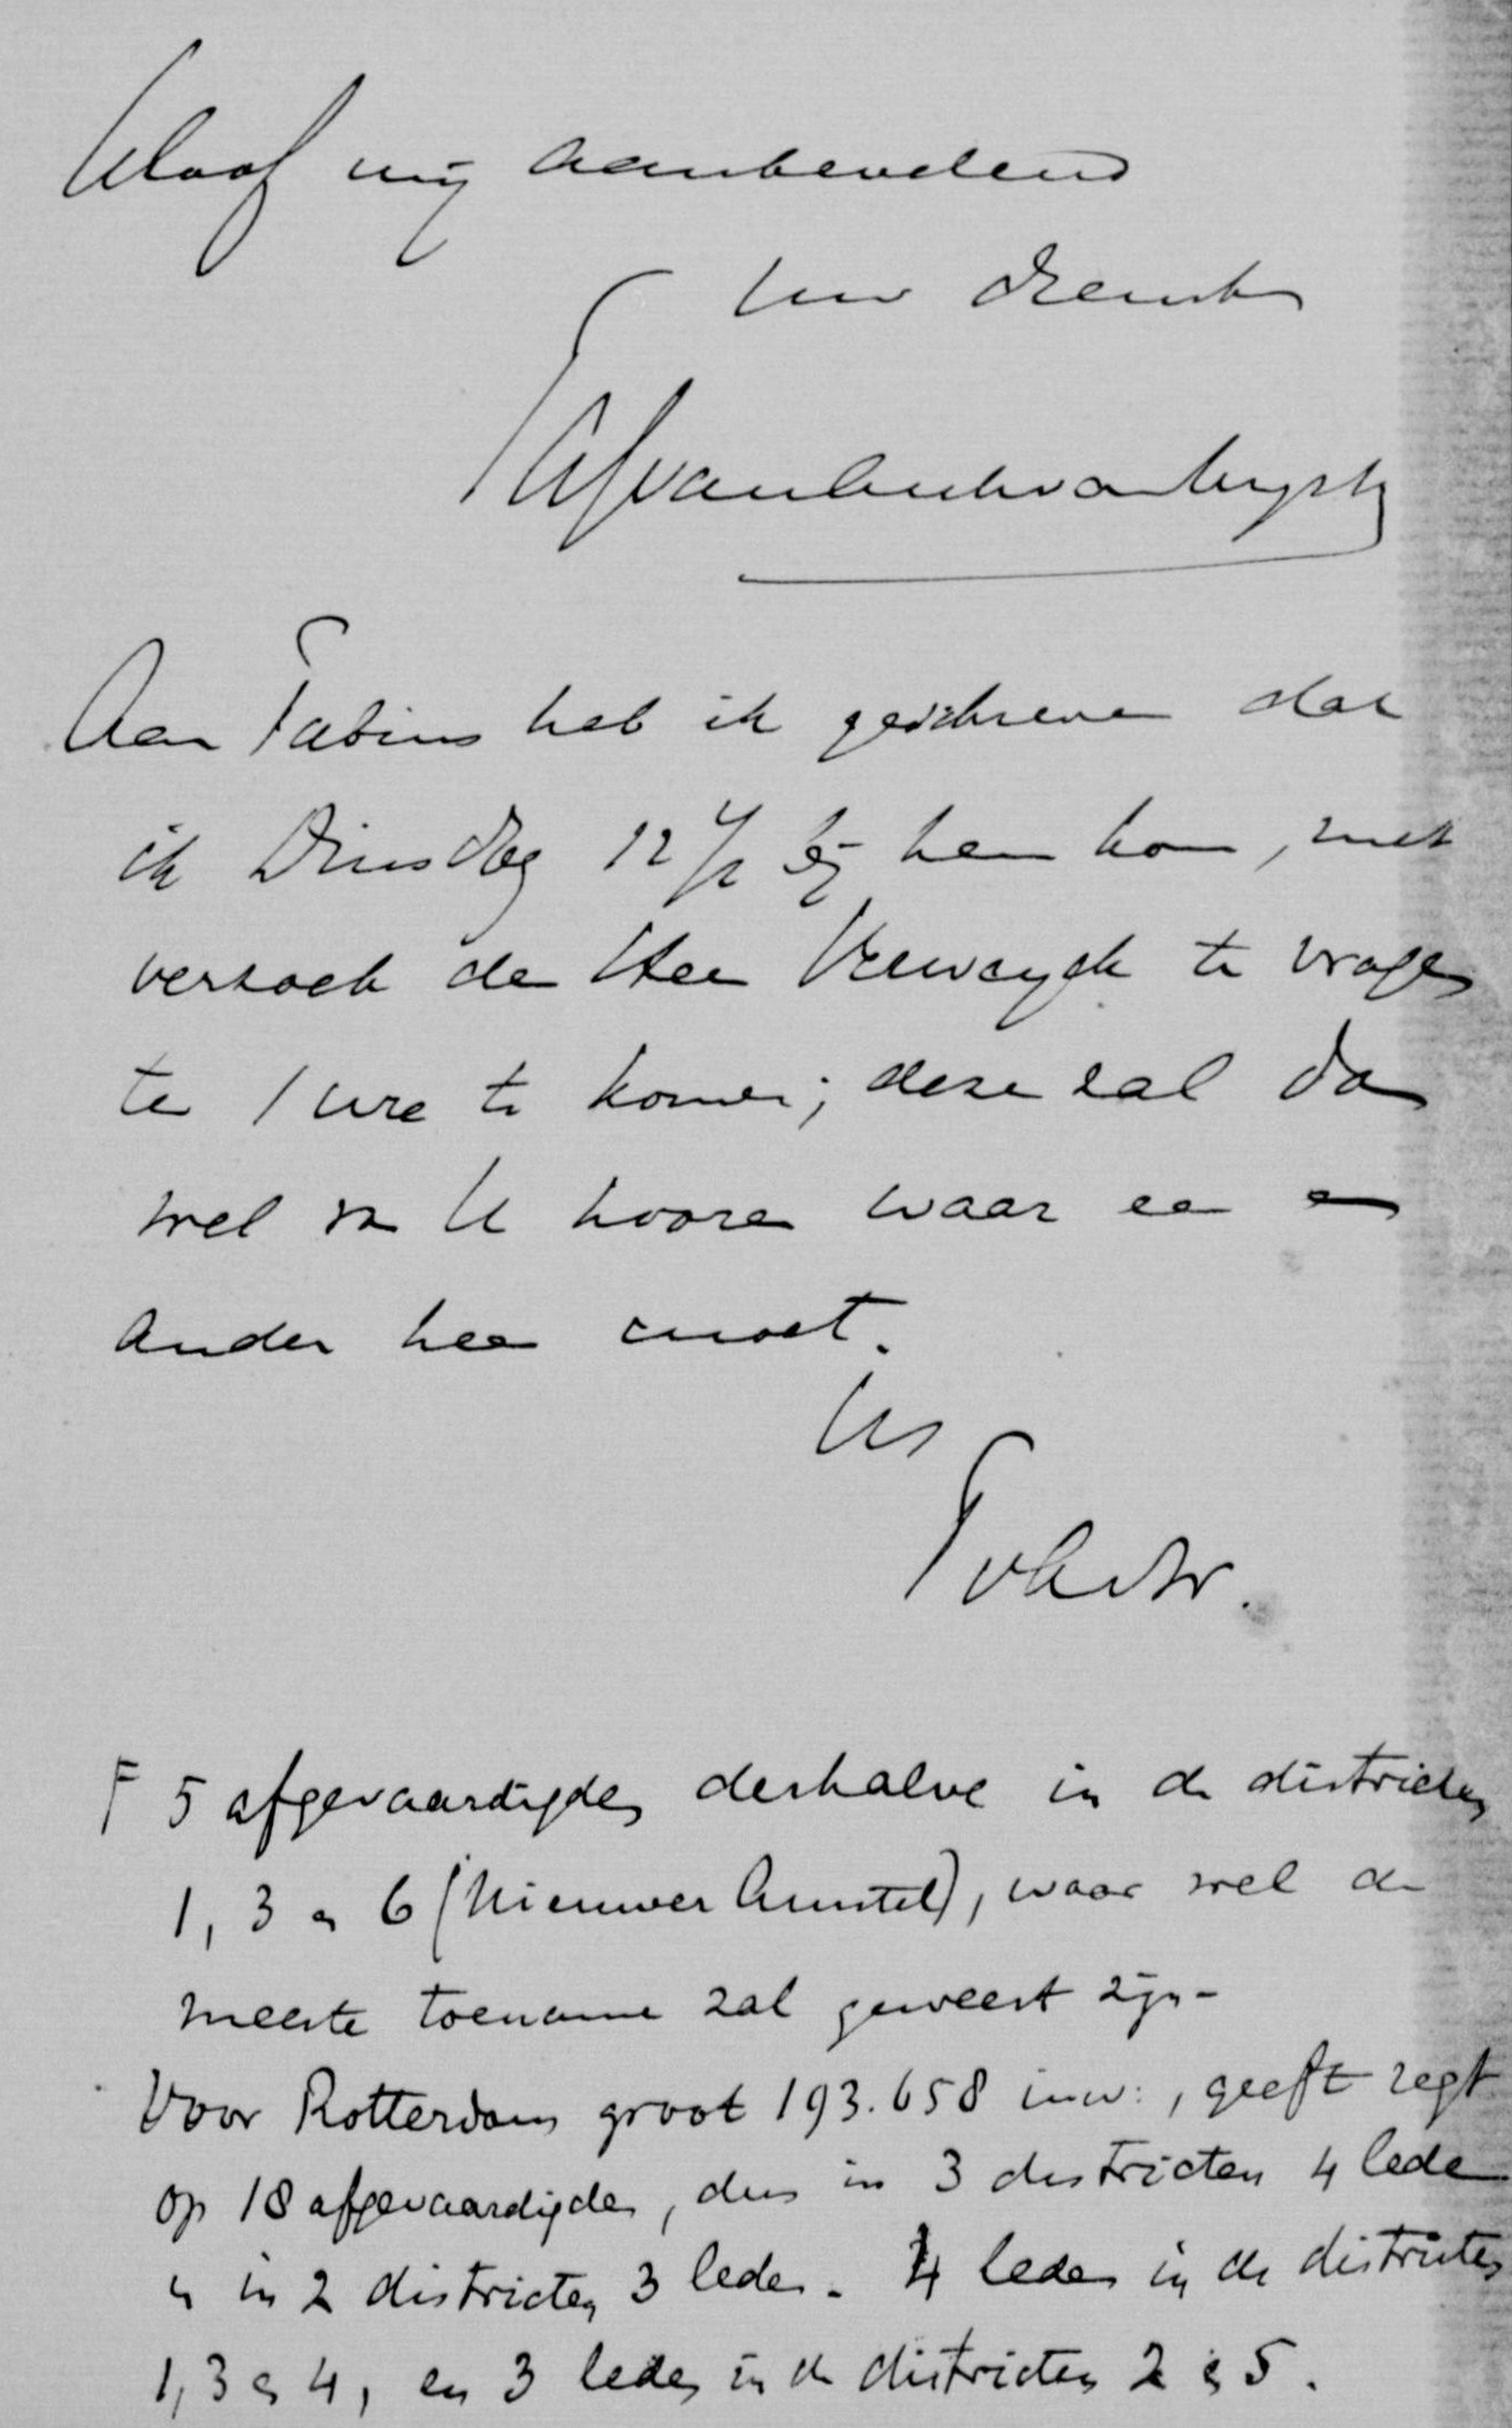 mij aanbevelend
Uw
Aan Fabius heb ik geschreven dat
ik Dinsdag 12 1/2 bij hem kom, met
verzoek den Heer te vragen
te 1 ure te komen; deze zal dan
wel van U hooren waar een en
ander heen moet.
Us
F 5 afgevaardigden derhalve in de districten
1, 3 en 6 (Nieuwer Amstel), waar wel de
meeste toename zal geweest zijn -
Voor Rotterdam groot 193.658 inw:, geeft regt
op 18 afgevaardigden, dus in 3 districten 4 leden
en in 2 districten 3 leden. 4 leden in de districten
1, 3 en 4, en 3 leden in de districten 2 en 5.